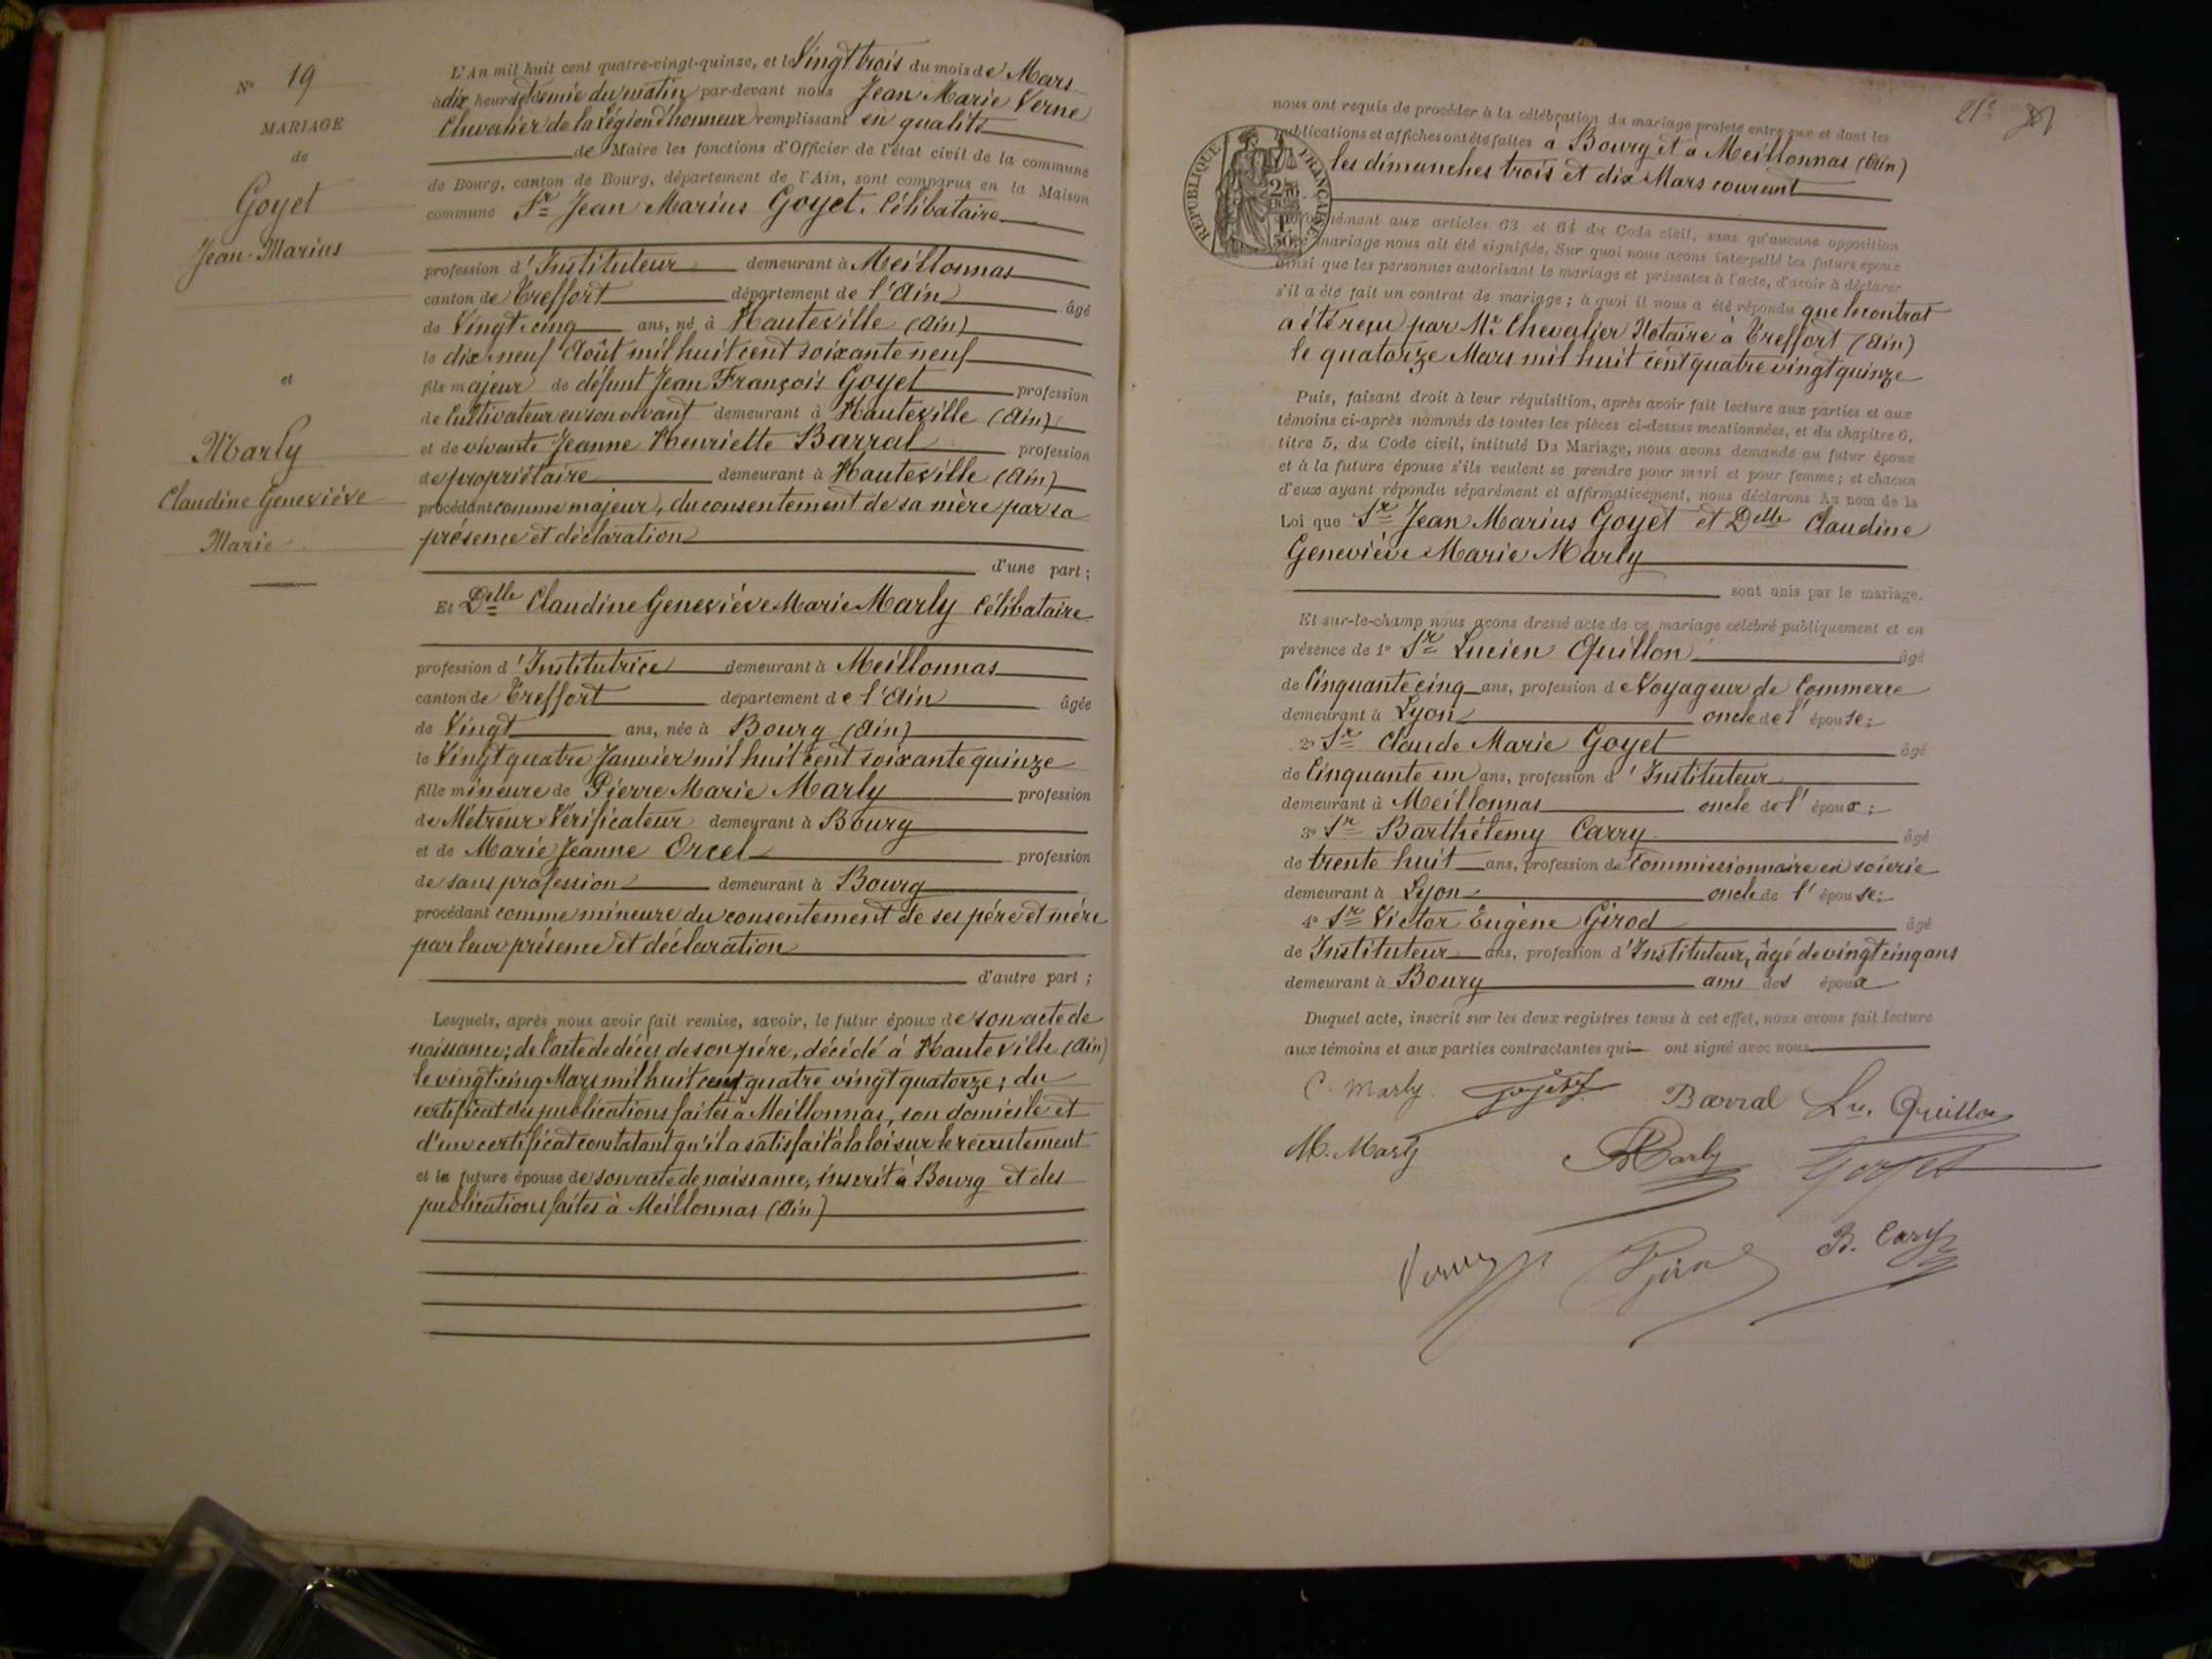 N° 19
MARIAGE
de
Goyet
Jean-Marius
et
Marly
Claudine Geneviève
Marie
L'An mil huit cent quatre-vingt-quinze, et le Vingt trois du mois de Mars
à dix heures et demie du matin par-devant nous Jean Marie Verne
Chevalier de la Légion d'honneur remplissant en qualité
de Maire les fonctions d'Officier de l'état civil de la commune
de Bourg, canton de Bourg, département de l'Ain, sont comparus en la Maison
commune Sr Jean Marius Goyet, Célibataire
profession d'Instituteur demeurant à Meillonnas
canton de Treffort département de l'Ain âgé
de Vingt-cinq ans, né à Hauteville (Ain)
le dix-neuf Août mil huit cent soixante neuf
fils majeur de défunt Jean François Goyet profession
de Cultivateur en son vivant demeurant à Hauteville (Ain)
et de vivante Jeanne Henriette Barral profession
de propriétaire demeurant à Hauteville (Ain)
procédant comme majeur, du consentement de sa mère par sa
présence et déclaration
d'une part ;
Et Delle Claudine Geneviève Marie Marly Célibataire
profession d'Institutrice demeurant à Meillonnas
canton de Treffort département de l'Ain âgée
de Vingt ans, née à Bourg (Ain)
le Vingt quatre Janvier mil huit cent soixante quinze
fille mineure de Pierre Marie Marly profession
de Métreur-Vérificateur demeurant à Bourg
et de Marie Jeanne Orcel profession
de sans profession demeurant à Bourg
procédant comme mineure du consentement de ses père et mère
par leur présence et déclaration
d'autre part ;
Lesquels, après nous avoir fait remise, savoir, le futur époux de son acte de
naissance; de l'acte de décès de son père, décédé à Hauteville (Ain)
le vingt-cinq Mars mil huit cent quatre vingt quatorze; du
certificat des publications faites à Meillonnas, son domicile et
d'un certificat constatant qu'il a satisfait à la loi sur le recrutement
et la future épouse de son acte de naissance, inscrit à Bourg et des
publications faites à Meillonnas (Ain)
21e
nous ont requis de procéder à la célébration du mariage projeté entre eux et dont les
publications et affiches ont été faites à Bourg et à Meillonnas (Ain)
les dimanches trois et dix Mars courant
RÉPUBLIQUE FRANÇAISE
conformément aux articles 63 et 64 du Code civil, sans qu'aucune opposition
mariage nous ait été signifiée. Sur quoi nous avons interpellé les futurs époux
ainsi que les personnes autorisant le mariage et présentes à l'acte, d'avoir à déclarer
s'il a été fait un contrat de mariage ; à quoi il nous a été répondu que le contrat
a été reçu par Me Chevalier Notaire à Treffort (Ain)
le quatorze Mars mil huit cent quatre vingt quinze
Puis, faisant droit à leur réquisition, après avoir fait lecture aux parties et aux
témoins ci-après nommés de toutes les pièces ci-dessus mentionnées, et du chapitre 6,
titre 5, du Code civil, intitulé Du Mariage, nous avons demandé au futur époux
et à la future épouse s'ils veulent se prendre pour mari et pour femme ; et chacun
d'eux ayant répondu séparément et affirmativement, nous déclarons Au nom de la
Loi que Sr Jean Marius Goyet et Delle Claudine
Geneviève Marie Marly
sont unis par le mariage.
Et sur-le-champ nous avons dressé acte de ce mariage célébré publiquement et en
présence de 1° Sr Lucien Quillon âgé
de Cinquante cinq ans, profession de Voyageur de Commerce
demeurant à Lyon oncle de l'épouse;
2° Sr Claude Marie Goyet âgé
de Cinquante un ans, profession d'Instituteur
demeurant à Meillonnas oncle de l'époux;
3° Sr Barthélemy Carry âgé
de trente huit ans, profession de Commissionnaire en soierie
demeurant à Lyon oncle de l'épouse;
4° Sr Victor Eugène Girod âgé
de Instituteur ans, profession d'Instituteur, âgé de vingt cinq ans
demeurant à Bourg ami des époux
Duquel acte, inscrit sur les deux registres tenus à cet effet, nous avons fait lecture
aux témoins et aux parties contractantes qui ont signé avec nous
C. Marly. Goyet Barral Lu. Quillon
M. Marly Marly Goyet
Verne Girod B. Carry